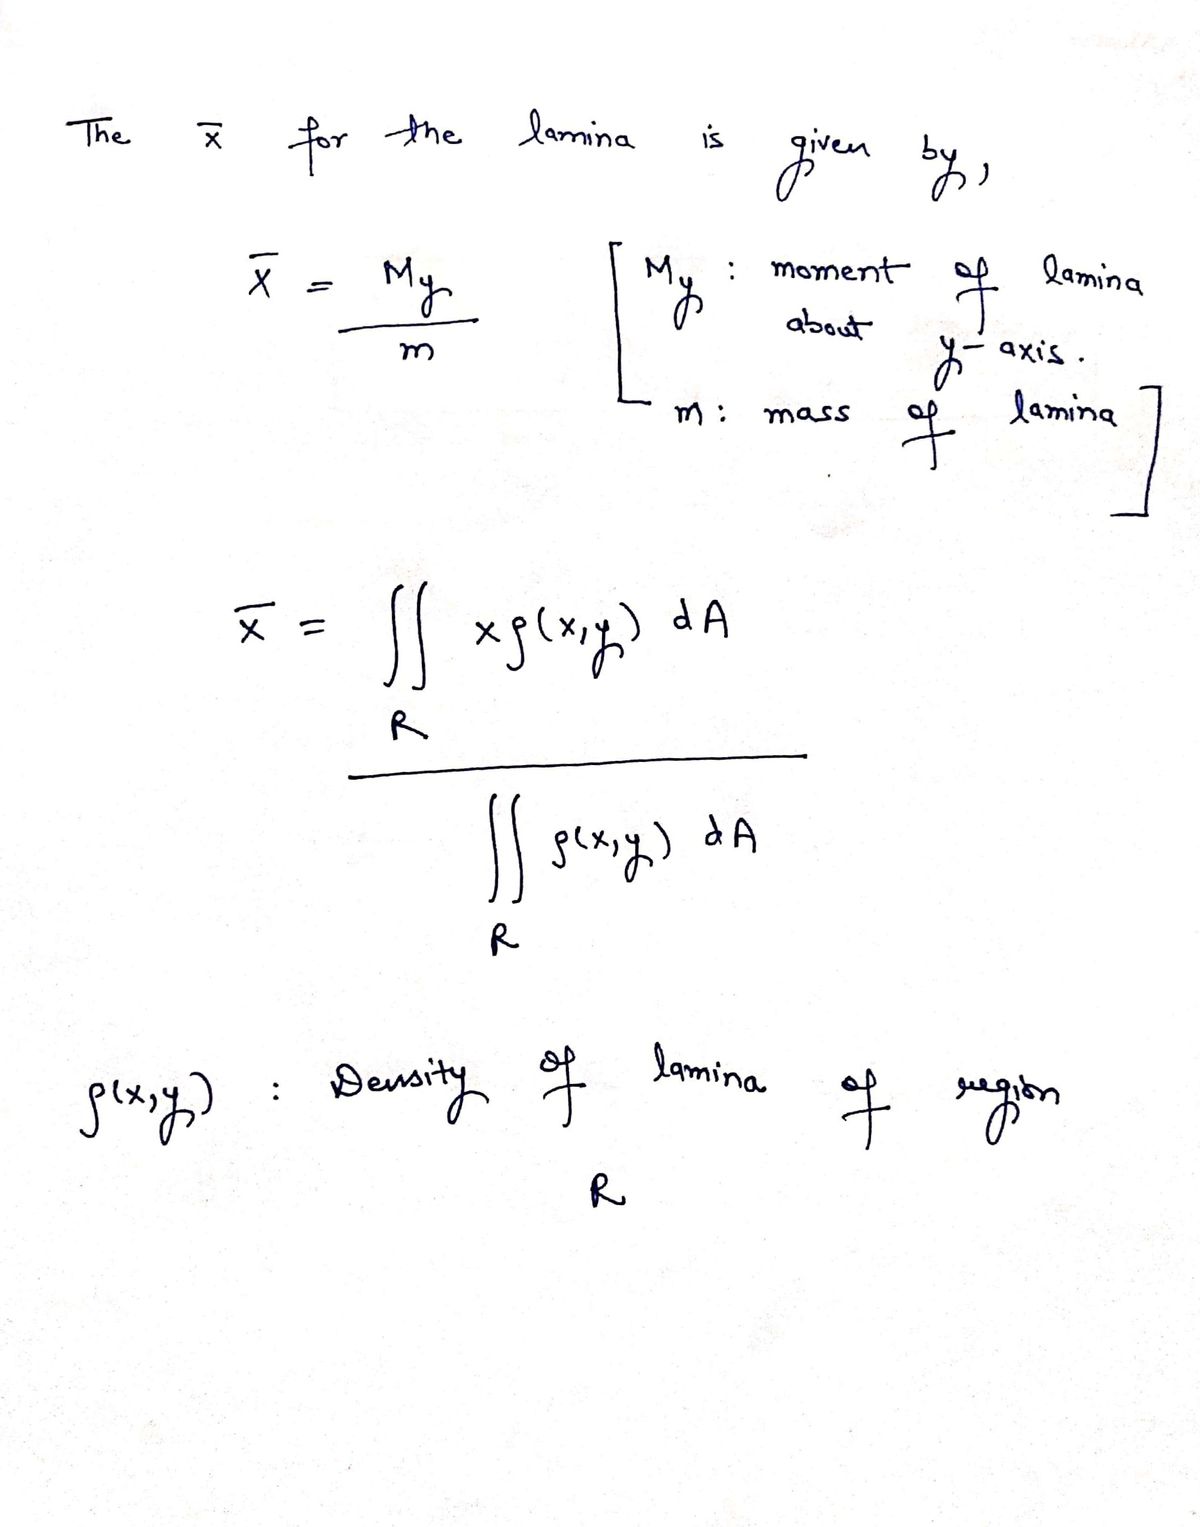 The x̄ for the lamina is given by,
x̄ = My / m [ My : moment of lamina
about y-axis.
m : mass of lamina ]
x̄ = ∬_R x ρ(x,y) dA
/ ∬_R ρ(x,y) dA
ρ(x,y) : Density of lamina of region
R